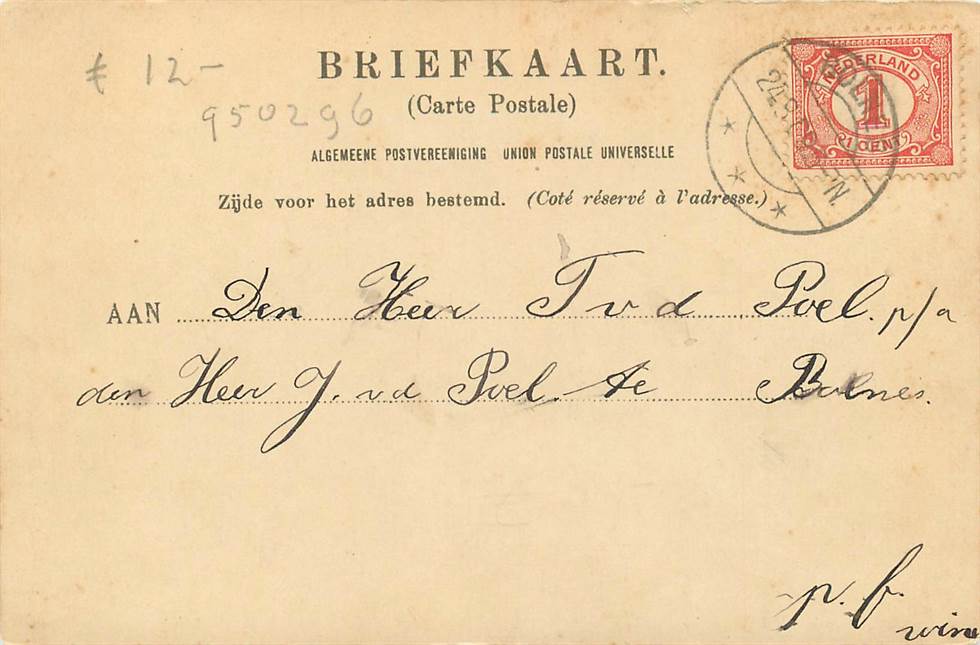 € 12-
950296
BRIEFKAART.
(Carte Postale)
ALGEMEENE POSTVEREENIGING UNION POSTALE UNIVERSELLE
Zijde voor het adres bestemd. (Coté réservé à l'adresse.)
NEDERLAND
1
1 CENT
AAN Den Heer T v d Poel. p/a
den Heer J. v d Poel. te Bolnes.
p. f.